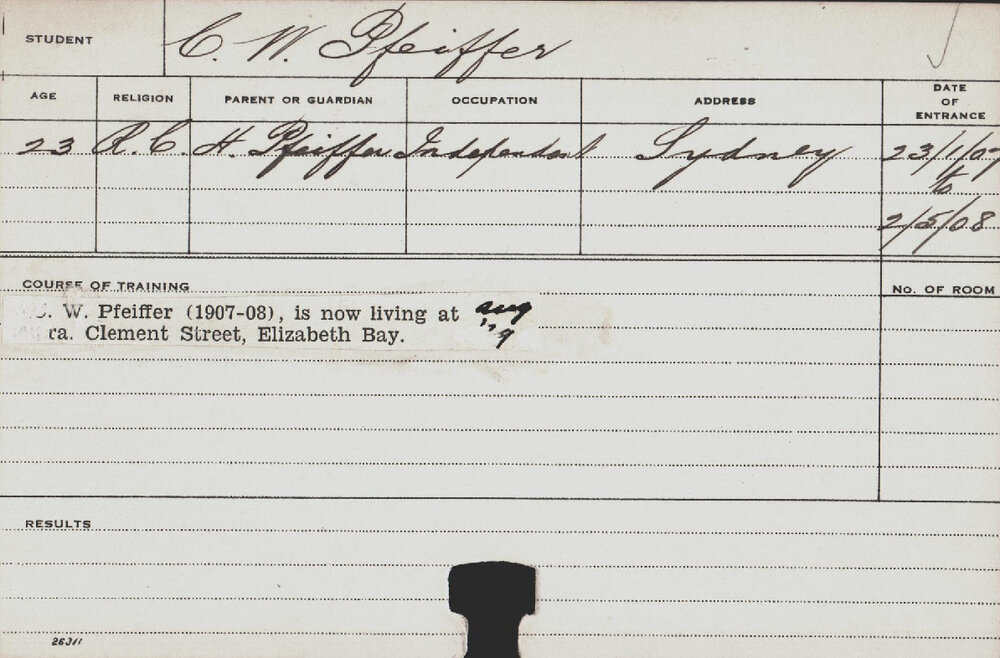 STUDENT C. W. Pfeiffer
AGE RELIGION PARENT OR GUARDIAN OCCUPATION ADDRESS DATE OF ENTRANCE
23 R.C. H. Pfeiffer Independent Sydney 23/1/07
to
2/5/08
COURSE OF TRAINING No. OF ROOM
. W. Pfeiffer (1907-08), is now living at aug
ra. Clement Street, Elizabeth Bay. '19
RESULTS
26311